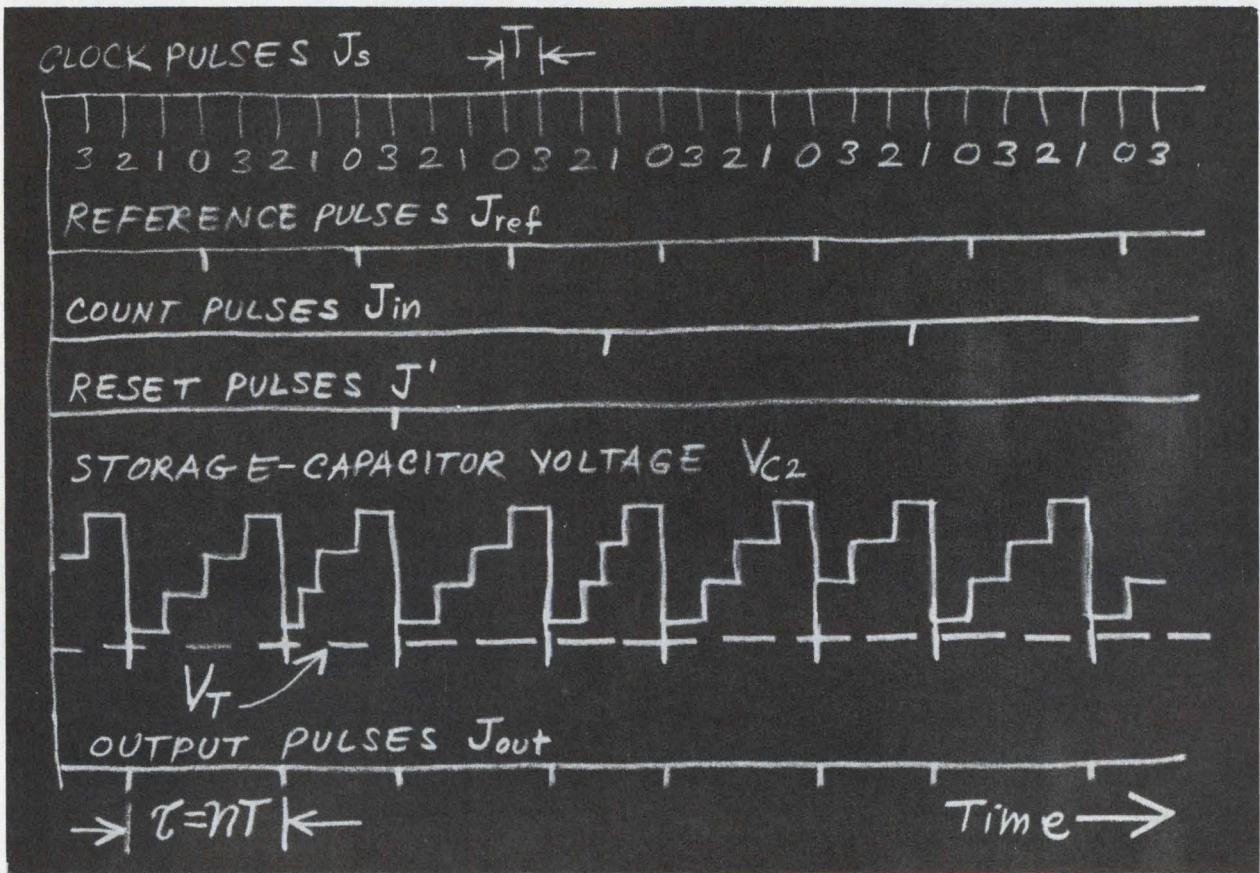 CLOCK PULSES Js T
3 2 1 0 3 2 1 0 3 2 1 0 3 2 1 0 3 2 1 0 3 2 1 0 3 2 1 0 3
REFERENCE PULSES Jref
COUNT PULSES Jin
RESET PULSES J'
STORAGE-CAPACITOR VOLTAGE VC2
VT
OUTPUT PULSES Jout
τ=nT
Time